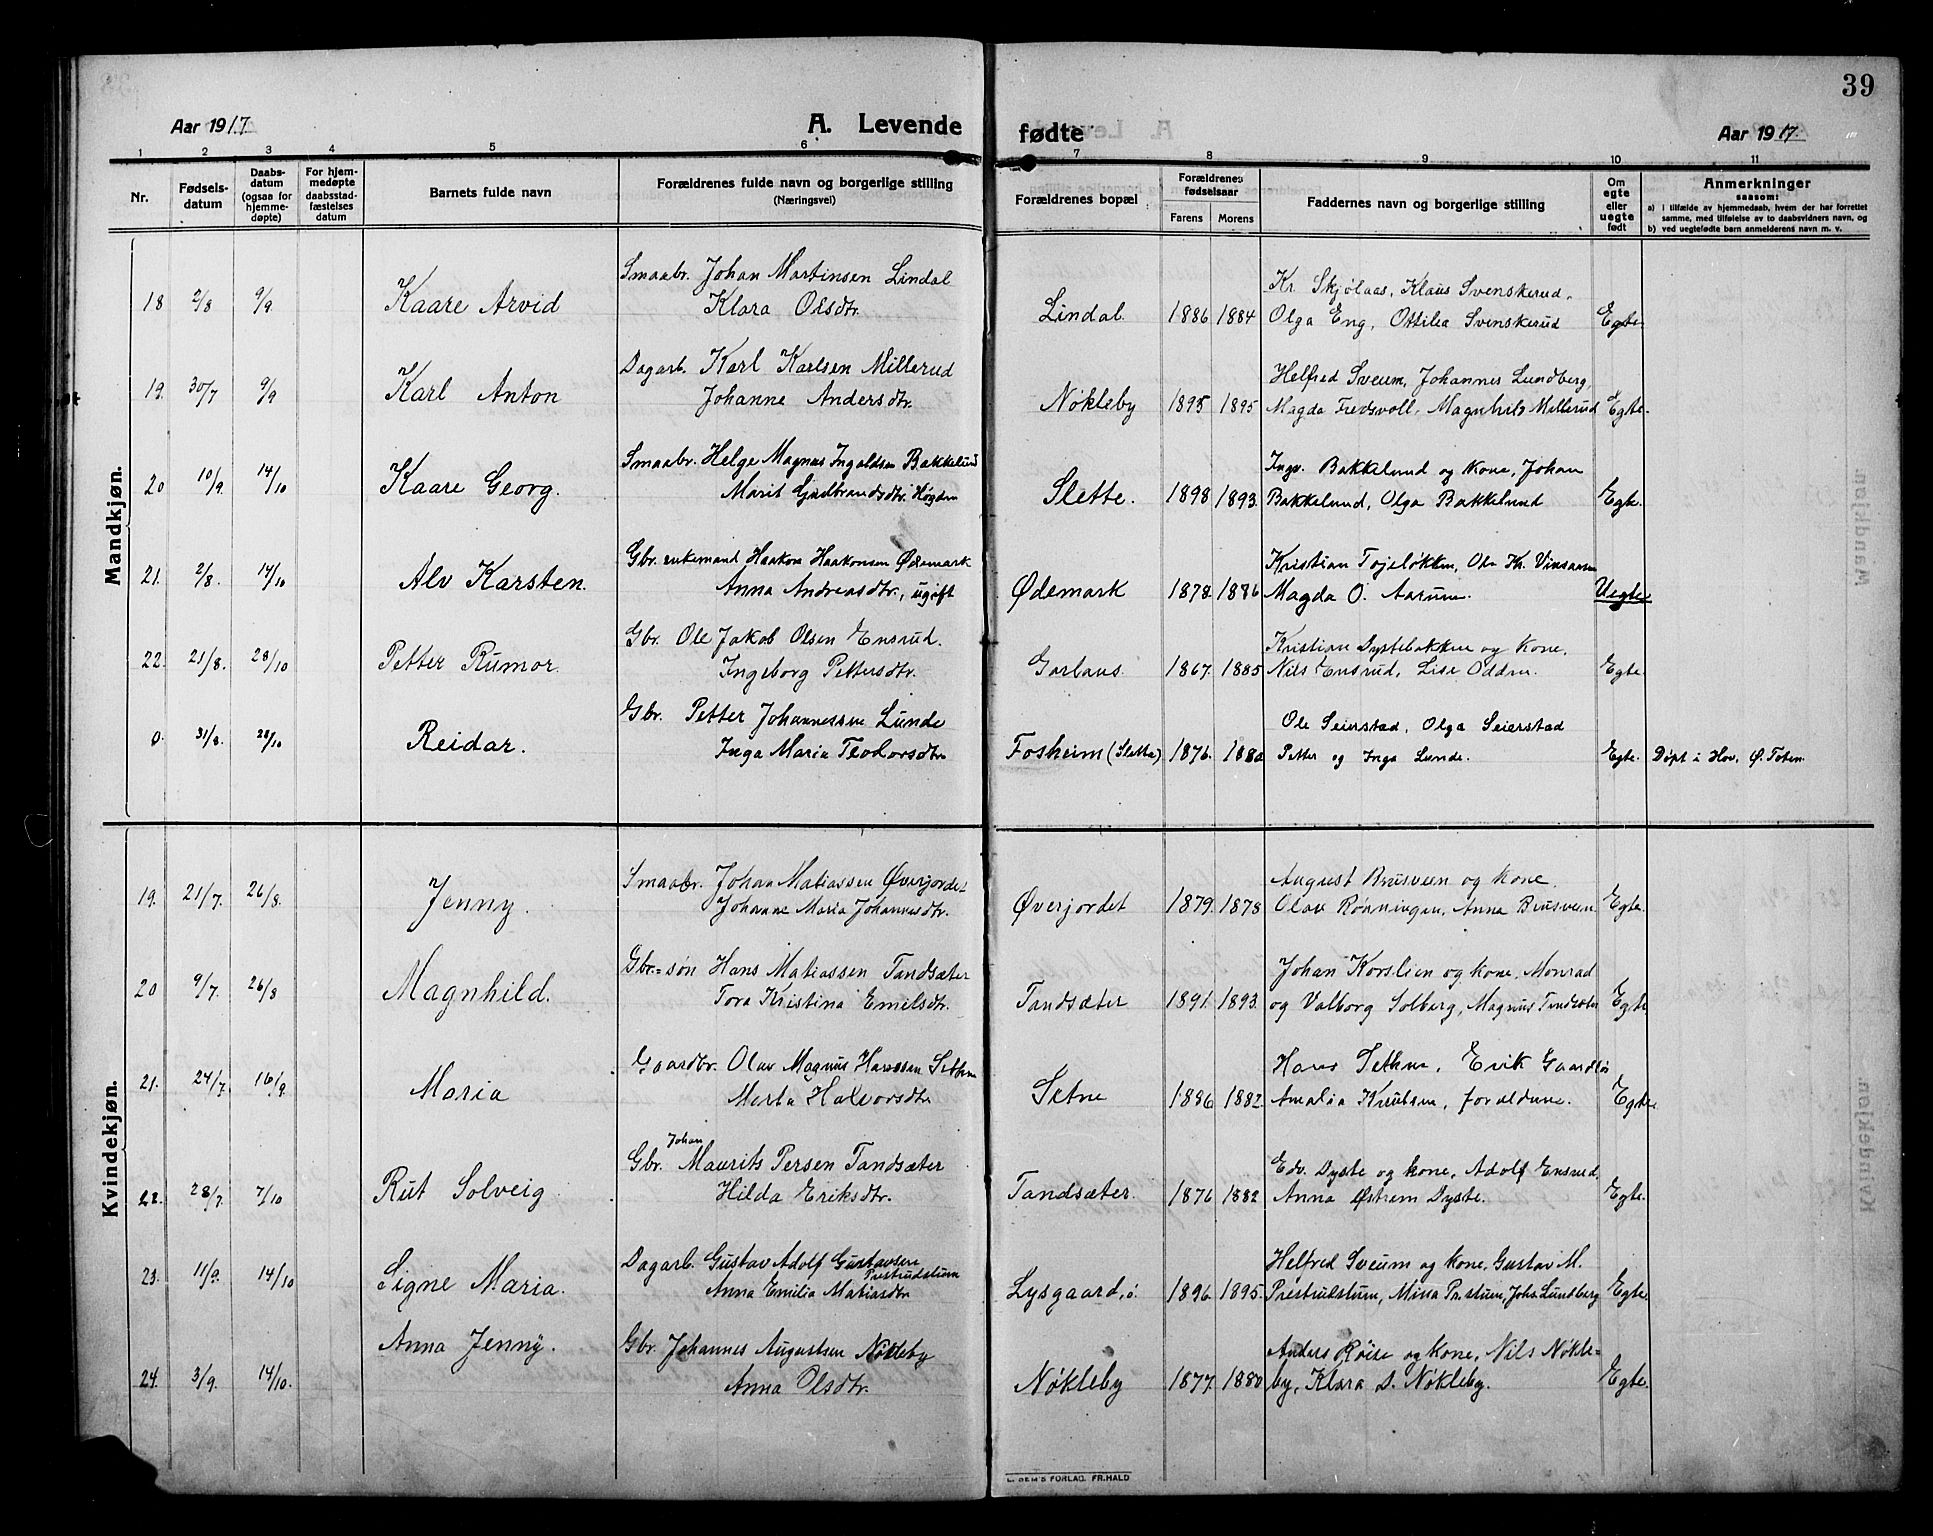 39
Aar 1917 A. Levende fødte Aar 1917.
1 2 3 4 5 6 7 8 9 10 11
Nr. Fødsels-datum Daabs-datum (ogsaa for hjemme-døpte) For hjem-medøpte daabsstad-fæstelses datum Barnets fulde navn Forældrenes fulde navn og borgerlige stilling (Næringsvei) Forældrenes bopæl Forældrenes fødselsaar Farens Morens Faddernes navn og borgerlige stilling Om egte eller uegte født Anmerkninger saasom:
a) i tilfælde av hjemmedaab, hvem der har forrettet samme, med tilføielse av to daabsvidners navn, og
b) ved uegtefødte barn anmelderens navn m. v.
Mandkjøn.
Smaabr. Johan Martinsen Lindal Kr. Skjølaas, Klaus Svenskerud,
18 2/8 9/9. Kaare Arvid Klara Olsdtr. Lindal. 1886 1884 Olga Eng, Ottilia Svenskerud Egte
Dagarb. Karl Karlsen Millerud Helfred Sveum, Johannes Lundberg,
19. 30/7 9/9 Karl Anton Johanne Andersdtr. Nøkleby 1895 1895 Magda Fredsvoll, Magnhild Millerud Egte.
Smaabr. Helge Magnus Ingvaldsen Bakkelund Ingv. Bakkelund og Kone, Johan
20 10/9. 14/10 Kaare Georg. Marit Gudbrandsdtr. Høgden Slette. 1898 1893. Bakkelund, Olga Bakkelund Egte.
Gbr. enkemand Haakon Haakonsen Ødemark Kristian Tøjeløkken, Ole Kr.
21. 2/8. 14/10 Alv Karsten. Anna Andreasdtr., ugift Ødemark 1878. 1886 Magda O. Aarum. Uegte
Gbr. Ole Jakob Olsen Ensrud. Kristian Dystebakken og Kone,
22. 21/8. 28/10 Petter Rumor. Ingeborg Pettersdtr. Garlaus. 1867. 1885 Nils Ensrud, Lise Odden. Egte.
Gbr. Petter Johannessen Lunde Ole Seierstad, Olga Seierstad
0. 31/8. 28/10 Reidar. Inga Maria Teodorsdtr Fosheim (Slette) 1876. 1880 Petter og Inga Lunde. Egte. Døpt i Hov, Ø. Toten.
Kvindekjøn.
Smaabr. Johan Matiassen Øverjordet August Brusveen og kone.
19. 21/7. 26/8. Jenny. Johanne Maria Johannesdtr. Øverjordet 1879. 1878 Olav Rønningen, Anna Brusveen Egte.
Gbr.=søn Hans Matiassen Tandsæter Johan Korslien og kone, Monrad
20 9/7. 26/8 Magnhild. Tora Kristina Emilsdtr. Tandsæter 1891. 1893. og Valborg Solberg, Magnus Tandsæter Egte
Gaardbr. Olav Magnus Hanssen Sethne Hans Sethne, Erik Gaardlø
21. 24/7. 16/9. Maria Marta Halvorsdtr Setne 1886 1882. Amalia Knutsen, foreldrene. Egte.
Johan
Gbr. Maurits Persen Tandsæter Edv. Dyste og kone, Adolf Ensrud,
22. 28/7. 7/10 Rut Solveig Hilda Eriksdtr. Tandsæter. 1876 1882 Anna Østrem Dyste. Egte.
Dagarb. Gustav Adolf Gustavsen Prestrudstum Helfred Sveum og kone, Gustav M.
23. 11/9. 14/10 Signe Maria. Anna Emilia Matiasdtr Lysgaard, ø. 1896. 1895. Prestrudstum, Mina Pr.stum, Johs. Lundberg Egte.
Anna Jenny. Gbr. Johannes Augustsen Nøkleby Anders Røise og kone, Nils Nøkle-
24. 3/9. 14/10. Anna Olsdtr. Nøkleby 1877. 1880 by, Klara D. Nøkleby. Egte.
FORLAG. FR.HALD